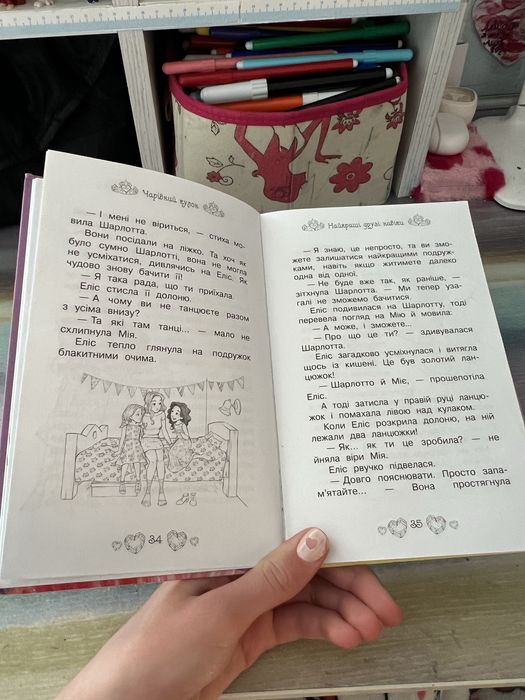 Чарівний кулон
— І мені не віриться, — стиха мо-
вила Шарлотта.
Вони посідали на ліжко. Та хоч як
було сумно Шарлотті, вона не могла
не усміхатися, дивлячись на Еліс. Як
чудово знову бачити її!
— Я така рада, що ти приїхала.
Еліс стисла її долоню.
— А чому ви не танцюєте разом
з усіма внизу?
— Та які там танці... — мало не
схлипнула Мія.
Еліс тепло глянула на подружок
блакитними очима.
34
Найкращі друзі навіки
— Я знаю, це непросто, та ви змо-
жете залишатися найкращими подруж-
ками, навіть якщо житимете далеко
одна від одної.
— Не буде вже так, як раніше, —
зітхнула Шарлотта. — Ми тепер уза-
галі не зможемо бачитися.
Еліс подивилася на Шарлотту, тоді
перевела погляд на Мію й мовила:
— А може, і зможете...
— Про що це ти? — здивувалася
Шарлотта.
Еліс загадково усміхнулася і витягла
щось із кишені. Це був золотий лан-
цюжок!
— Шарлотто й Міє, — прошепотіла
Еліс.
А тоді затисла у правій руці ланцю-
жок і помахала лівою над кулаком.
Коли Еліс розкрила долоню, на ній
лежали два ланцюжки!
— Як... як ти це зробила? — не
йняла віри Мія.
Еліс рвучко підвелася.
— Довго пояснювати. Просто запа-
м'ятайте... — Вона простягнула
35